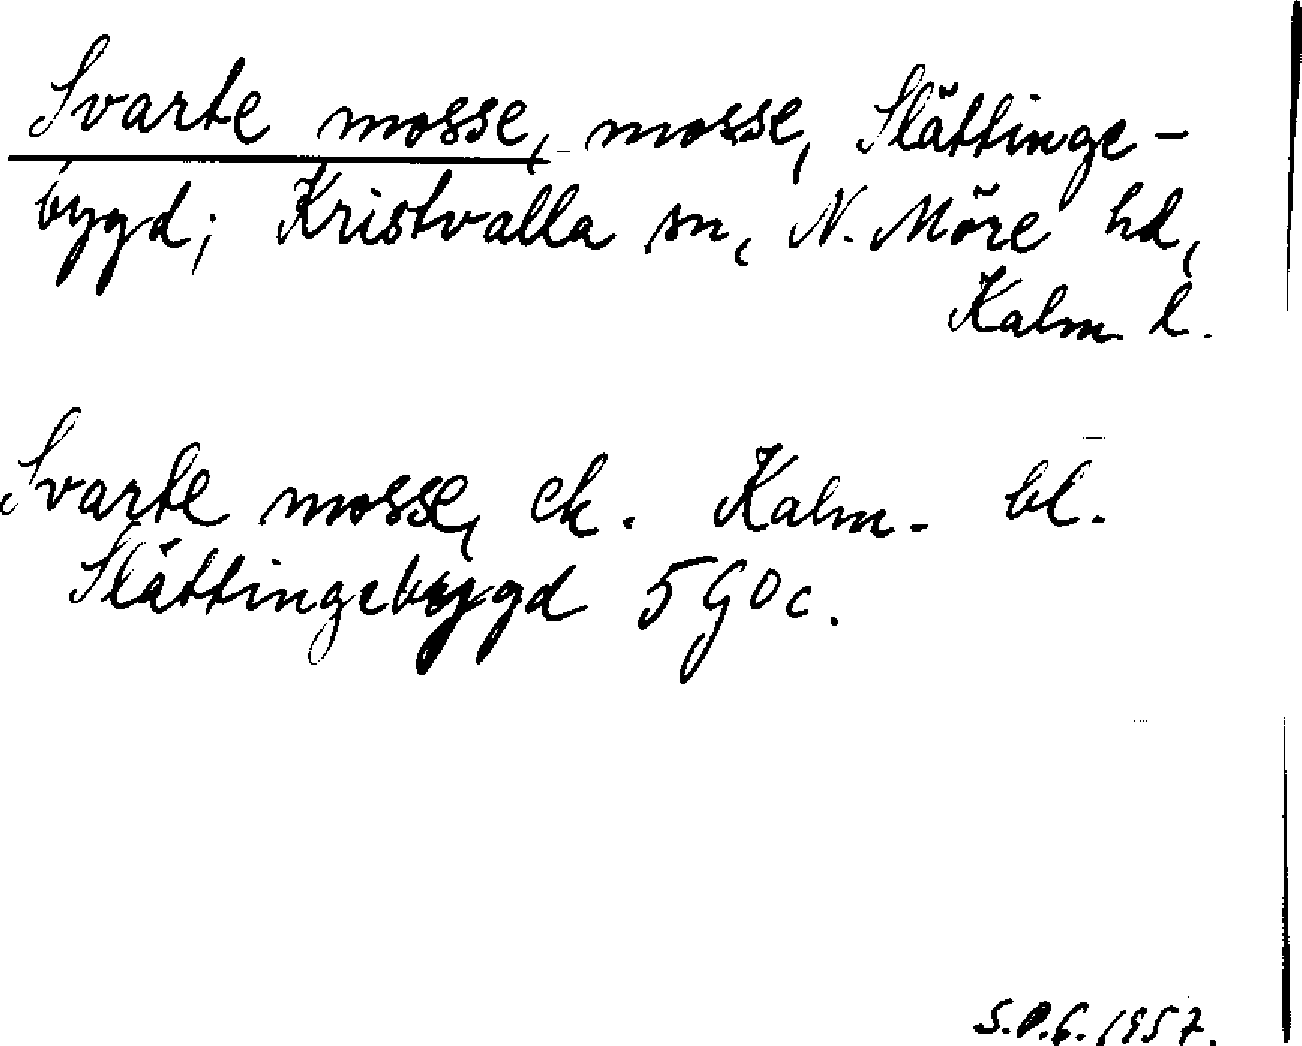 Svarte mosse, mosse, Slättinge-
bygd; Kristvalla sn, N. Möre hd,
Kalm. l.
Svarte mosse, ek. Kalm. bl.
Slättingebygd 5 G 0 c.
S.P.G. 1957.